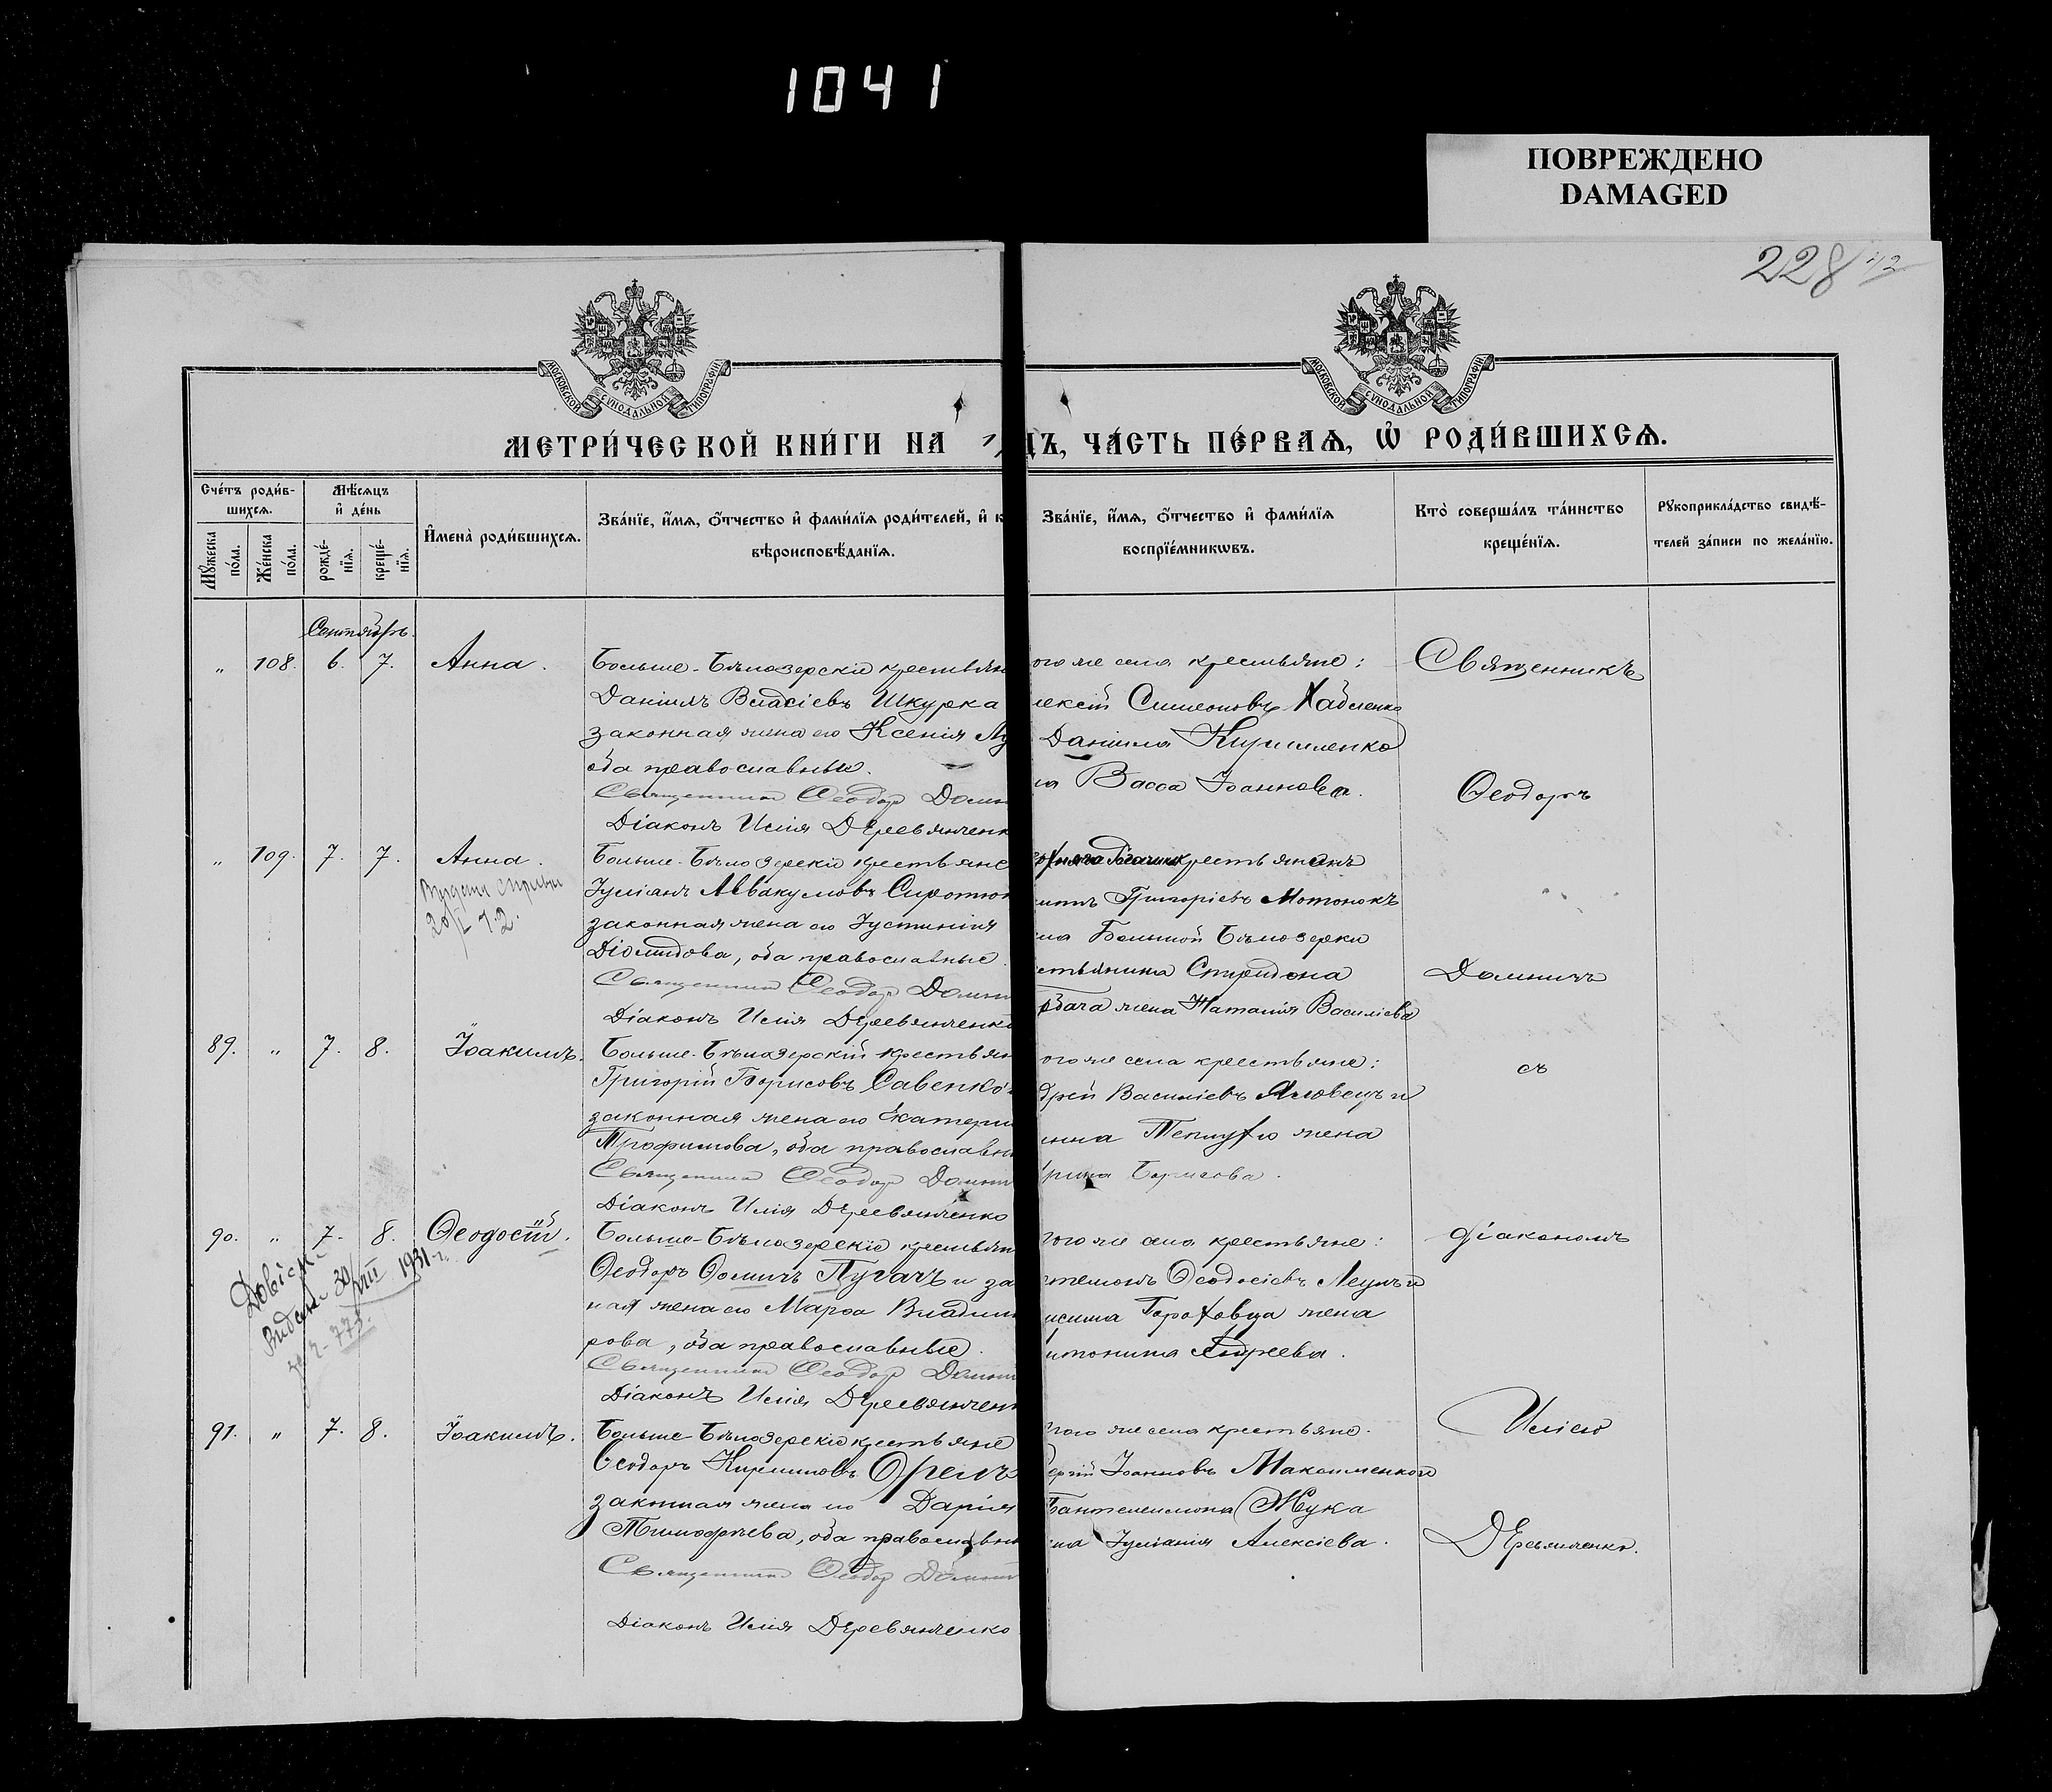 1041
ПОВРЕЖДЕНО
DAMAGED
228
МОСКОВСКОЙ СУНОДАЛЬНОЙ ТИПОГРАФІИ
МОСКОВСКОЙ СУНОДАЛЬНОЙ ТИПОГРАФІИ
МЕТРИ́ЧЕСКОЙ КНИ́ГИ НА
ДЪ, ЧА́СТЬ ПЕ́РВАѦ, Ѡ҆ РОДИ́ВШИХСѦ.
Сче́тъ роди́в-
шихсѧ.
Мѣ́сѧцъ
и҆ де́нь
Мꙋ́жеска по́ла.
Же́нска по́ла.
рожде́-нїѧ.
креще́-нїѧ.
И҆мена̀ роди́вшихсѧ.
Зва́нїе, и҆́мѧ, ѻ҆́тчество и҆ фами́лїѧ роди́телей, и҆ к
вѣроисповѣ́данїѧ.
Зва́нїе, и҆́мѧ, ѻ҆́тчество и҆ фами́лїѧ
воспрїе́мникѡвъ.
Кто̀ соверша́лъ та́инство
креще́нїѧ.
Рꙋкоприкла́дство свидѣ́-
телей за́писи по жела́нїю.
Сентябрь.
„ 108. 6. 7. Анна.
Больше-Бѣлозерскіе крестьян
Даніилъ Власіевъ Шкурка
законная жена его Ксенія
оба православные.
Священникъ Ѳеодоръ Домн
Діаконъ Илія Деревянченк
ого же села крестьяне:
лексій Симеоновъ
Даніила Кириленко
на Васса Іоаннова.
Священникъ
Ѳеодоръ
„ 109. 7. 7. Анна.
20/I 42.
Больше-Бѣлозерскіе крестьяне
Іуліанъ Аввакумовъ Сиротюк
законная жена его Іустинія
Діомидова, оба православные.
Священникъ Ѳеодоръ Домн
Діаконъ Илія Деревянченко
крестьянинъ
Григоріевъ Мотонокъ
ла Большой Бѣлозерки
стьянина Спиридона
жена Наталія Василіева
Домничъ
89. „ 7. 8. Іоакимъ.
Больше-Бѣлозерскій крестьян
Григорій Борисовъ Савенко
законная жена его Екатери
Трофимова, оба православн
Священникъ Ѳеодоръ Домн
Діаконъ Илія Деревянченко
ого же села крестьяне:
дрей Василіевъ Яловецъ и
жена
рина
съ
90. „ 7. 8. Ѳеодосій.
30/VIII 1931 г.
Больше-Бѣлозерскіе крестьян
Ѳеодоръ Ѳомичъ Пугачъ и за
ная жена его Марѳа Владим
рова, оба православные.
Священникъ Ѳеодоръ Домн
Діаконъ Илія Деревянчен
того же села крестьяне:
Ѳеодосіевъ
жена
нтонина Андреева.
діакономъ
91. „ 7. 8. Іоакимъ.
Больше-Бѣлозерскіе крестьяне
Ѳеодоръ Кирилловъ Орелъ
законная жена его Дарія
Тимоѳеева, оба православн
Священникъ Ѳеодоръ Домн
Діаконъ Илія Деревянченко
того же села крестьяне.
ергій Іоанновъ Максименко и
Пантелеимона Жука
на Іуліанія Алексіева.
Иліею
Деревянченко.